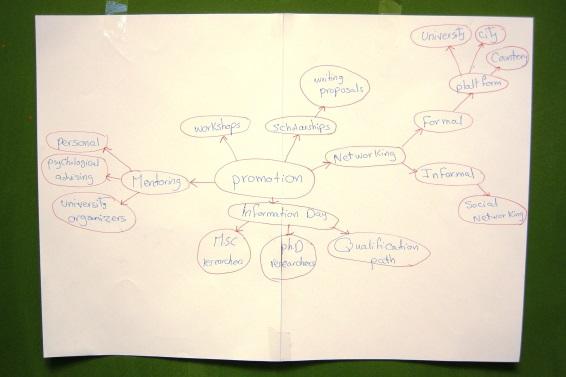 University
City
Country
platform
Formal
writing
proposals
workshops
scholarships
Networking
Informal
Social
Networking
promotion
personal
psychological
advising
Mentoring
University
organizers
Information Day
MSC
ph.D
researchers
Qualification
path